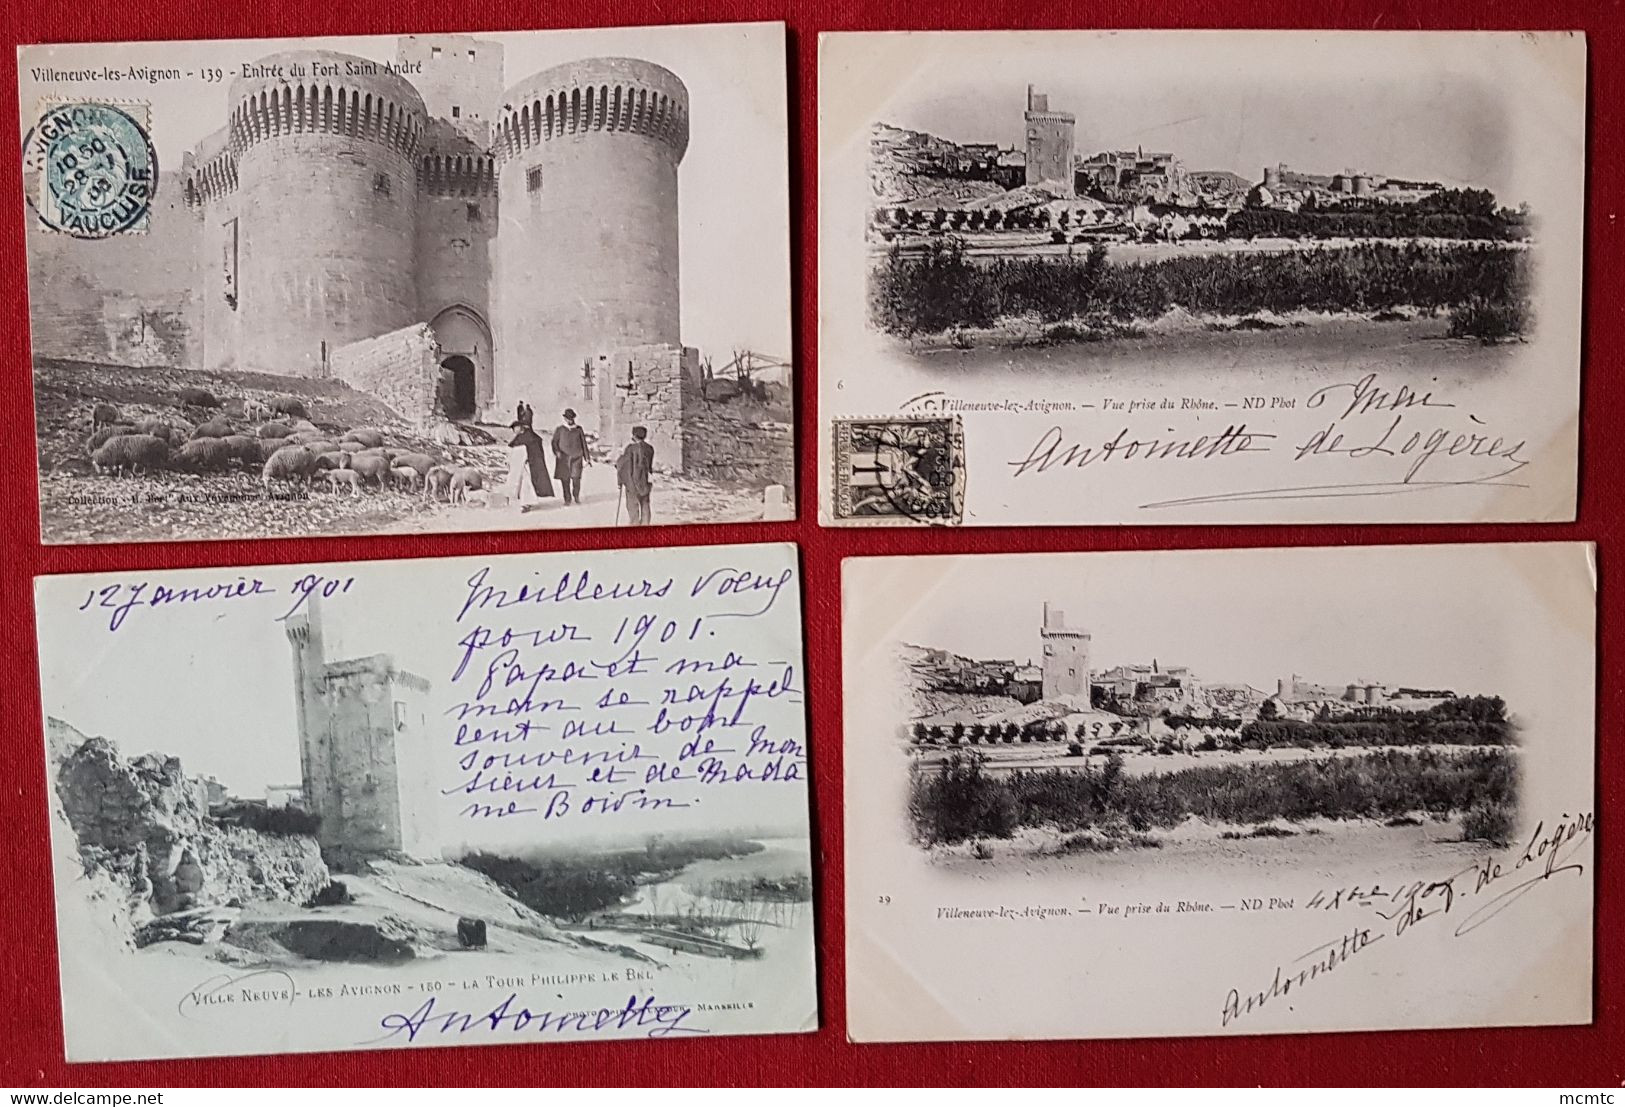 Villeneuve-les-Avignon - 139 - Entrée du Fort Saint André
AVIGNON
10 50
28 -1
VAUCLUSE
Aux Avignon
Collection
6
Villeneuve-lez-Avignon. — Vue prise du Rhône. — ND Phot
Antoinette de Logères
12 Janvier 1901
Meilleurs voeux
pour 1901.
Papa et ma-
man se rappel-
lent au bon
souvenir de Mon
sieur et de Mada
me Boivin.
VILLE NEUVE - LES AVIGNON - 150 - LA TOUR PHILIPPE LE BEL
MARSEILLE
Antoinette
29
Villeneuve-lez-Avignon. — Vue prise du Rhône. — ND Phot
4 Xbre 190
Antoinette de Logères
mcmtc